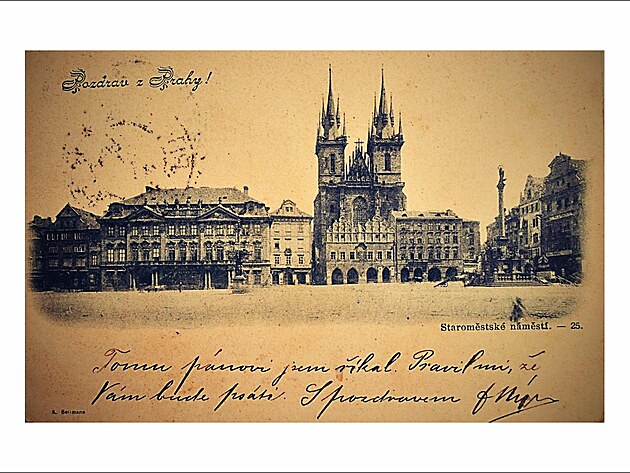 Pozdrav z Prahy!
Staroměstské náměstí. — 25.
Tomu pánovi jsem říkal. Pravil mi, že
Vám bude psáti. S pozdravem